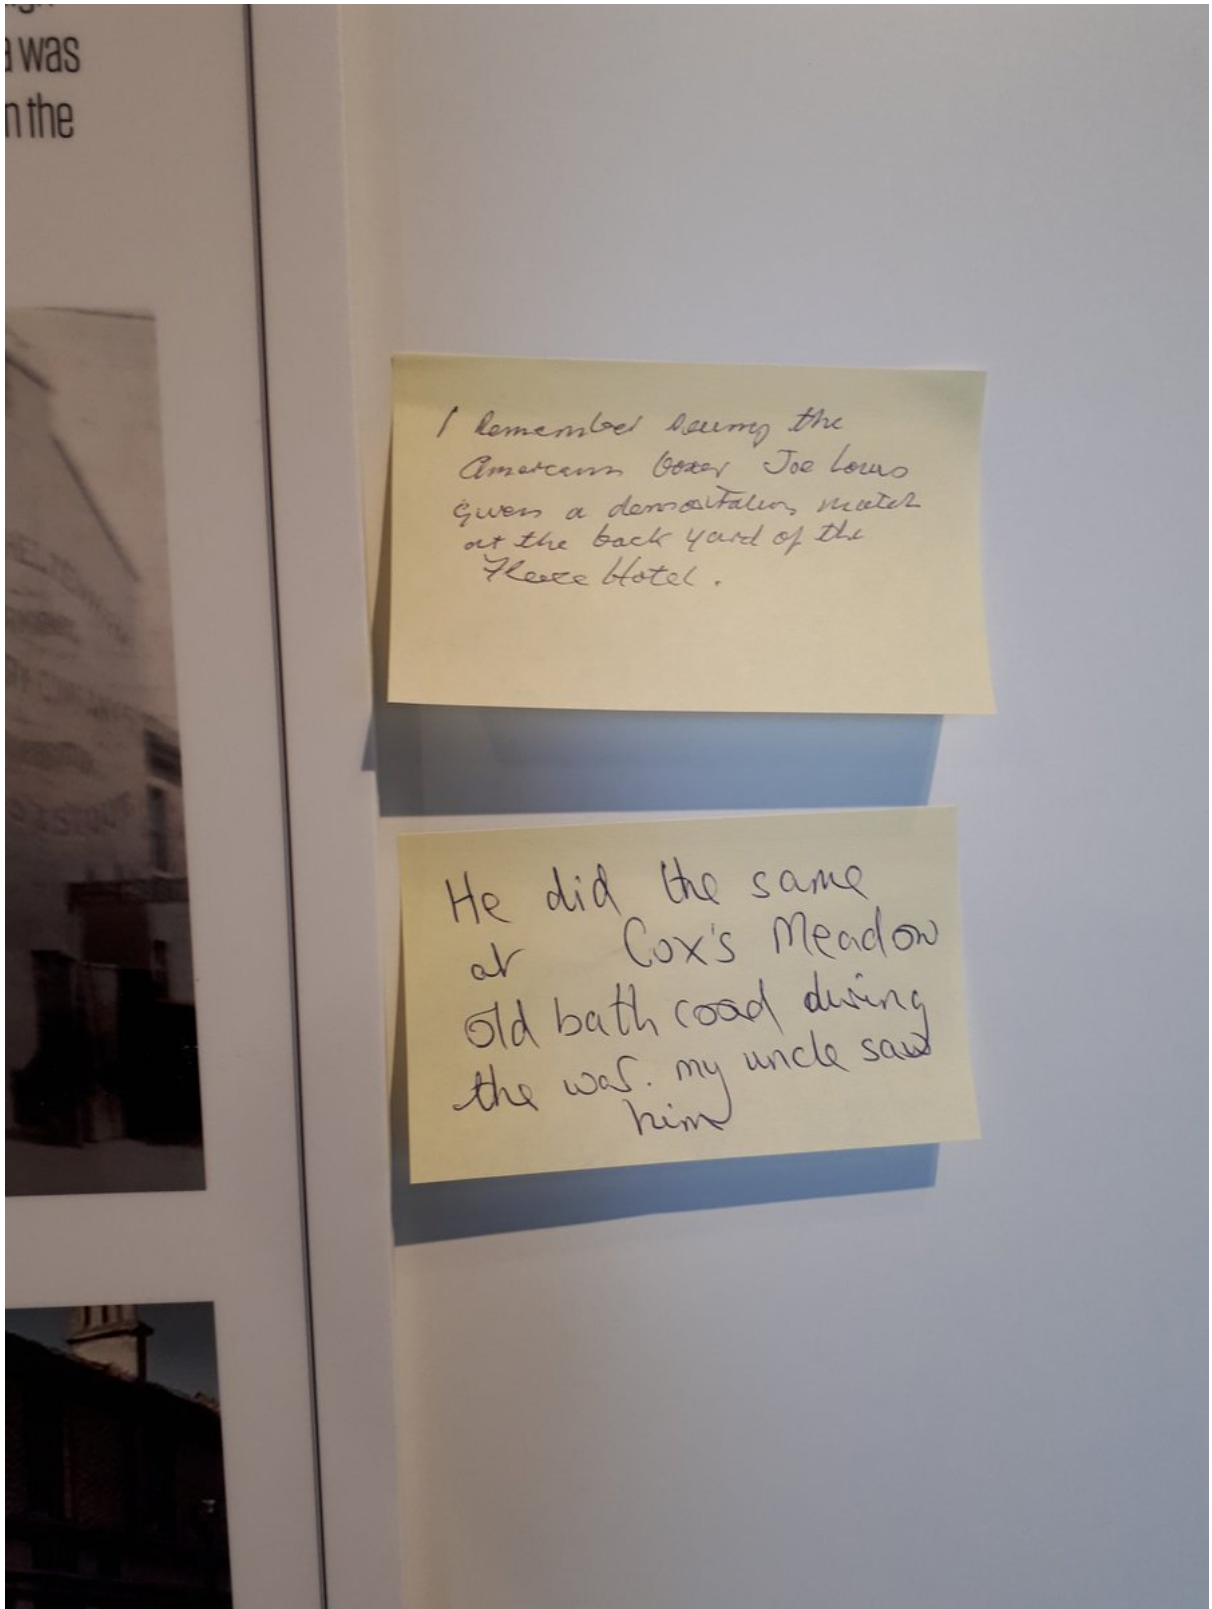 a was
n the
I Remember seeing the
Amercann boxer Joe Louis
given a demostation match
at the back yard of the
Fleece Hotel.
He did the same
at Cox's Meadow
old bath road during
the war. my uncle saw
him